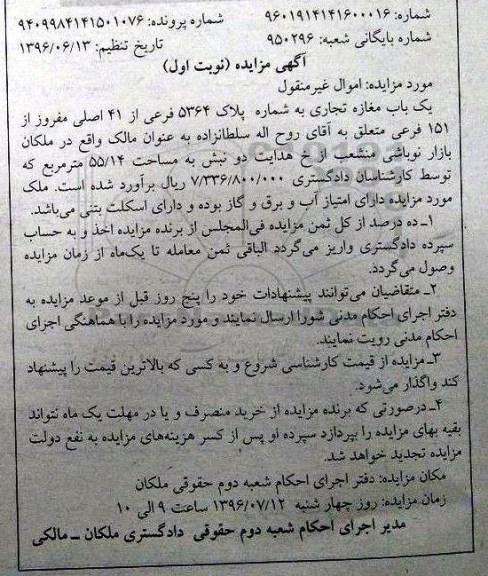 شماره: ۹۶۰۱۹۱۴۱۴۱۶۰۰۰۱۶ شماره پرونده: ۹۴۰۹۹۸۴۱۴۱۵۰۱۰۷۶
شماره بایگانی شعبه: ۹۵۰۲۹۶ تاریخ تنظیم: ۱۳۹۶/۰۶/۱۳
آگهی مزایده (نوبت اول)
مورد مزایده: اموال غیرمنقول
یک باب مغازه تجاری به شماره پلاک ۵۳۶۴ فرعی از ۴۱ اصلی مفروز از
۱۵۱ فرعی متعلق به آقای روح اله سلطانزاده به عنوان مالک واقع در ملکان
بازار نوباشی منشعب از خ هدایت دو نبش به مساحت ۵۵/۱۴ مترمربع که
توسط کارشناسان دادگستری ۷/۳۳۶/۸۰۰/۰۰۰ ریال برآورد شده است. ملک
مورد مزایده دارای امتیاز آب و برق و گاز بوده و دارای اسکلت بتنی می‌باشد.
۱ـ ده درصد از کل ثمن مزایده فی‌المجلس از برنده مزایده اخذ و به حساب
سپرده دادگستری واریز می‌گردد الباقی ثمن معامله تا یک‌ماه از زمان مزایده
وصول می‌گردد.
۲ـ متقاضیان می‌توانند پیشنهادات خود را پنج روز قبل از موعد مزایده به
دفتر اجرای احکام مدنی شورا ارسال نمایند و مورد مزایده را با هماهنگی اجرای
احکام مدنی رویت نمایند.
۳ـ مزایده از قیمت کارشناسی شروع و به کسی که بالاترین قیمت را پیشنهاد
کند واگذار می‌شود.
۴ـ درصورتی که برنده مزایده از خرید منصرف و یا در مهلت یک ماه نتواند
بقیه بهای مزایده را بپردازد سپرده او پس از کسر هزینه‌های مزایده به نفع دولت
مزایده تجدید خواهد شد.
مکان مزایده: دفتر اجرای احکام شعبه دوم حقوقی ملکان
زمان مزایده: روز چهار شنبه ۱۳۹۶/۰۷/۱۲ ساعت ۹ الی ۱۰
مدیر اجرای احکام شعبه دوم حقوقی دادگستری ملکان ــ مالکی